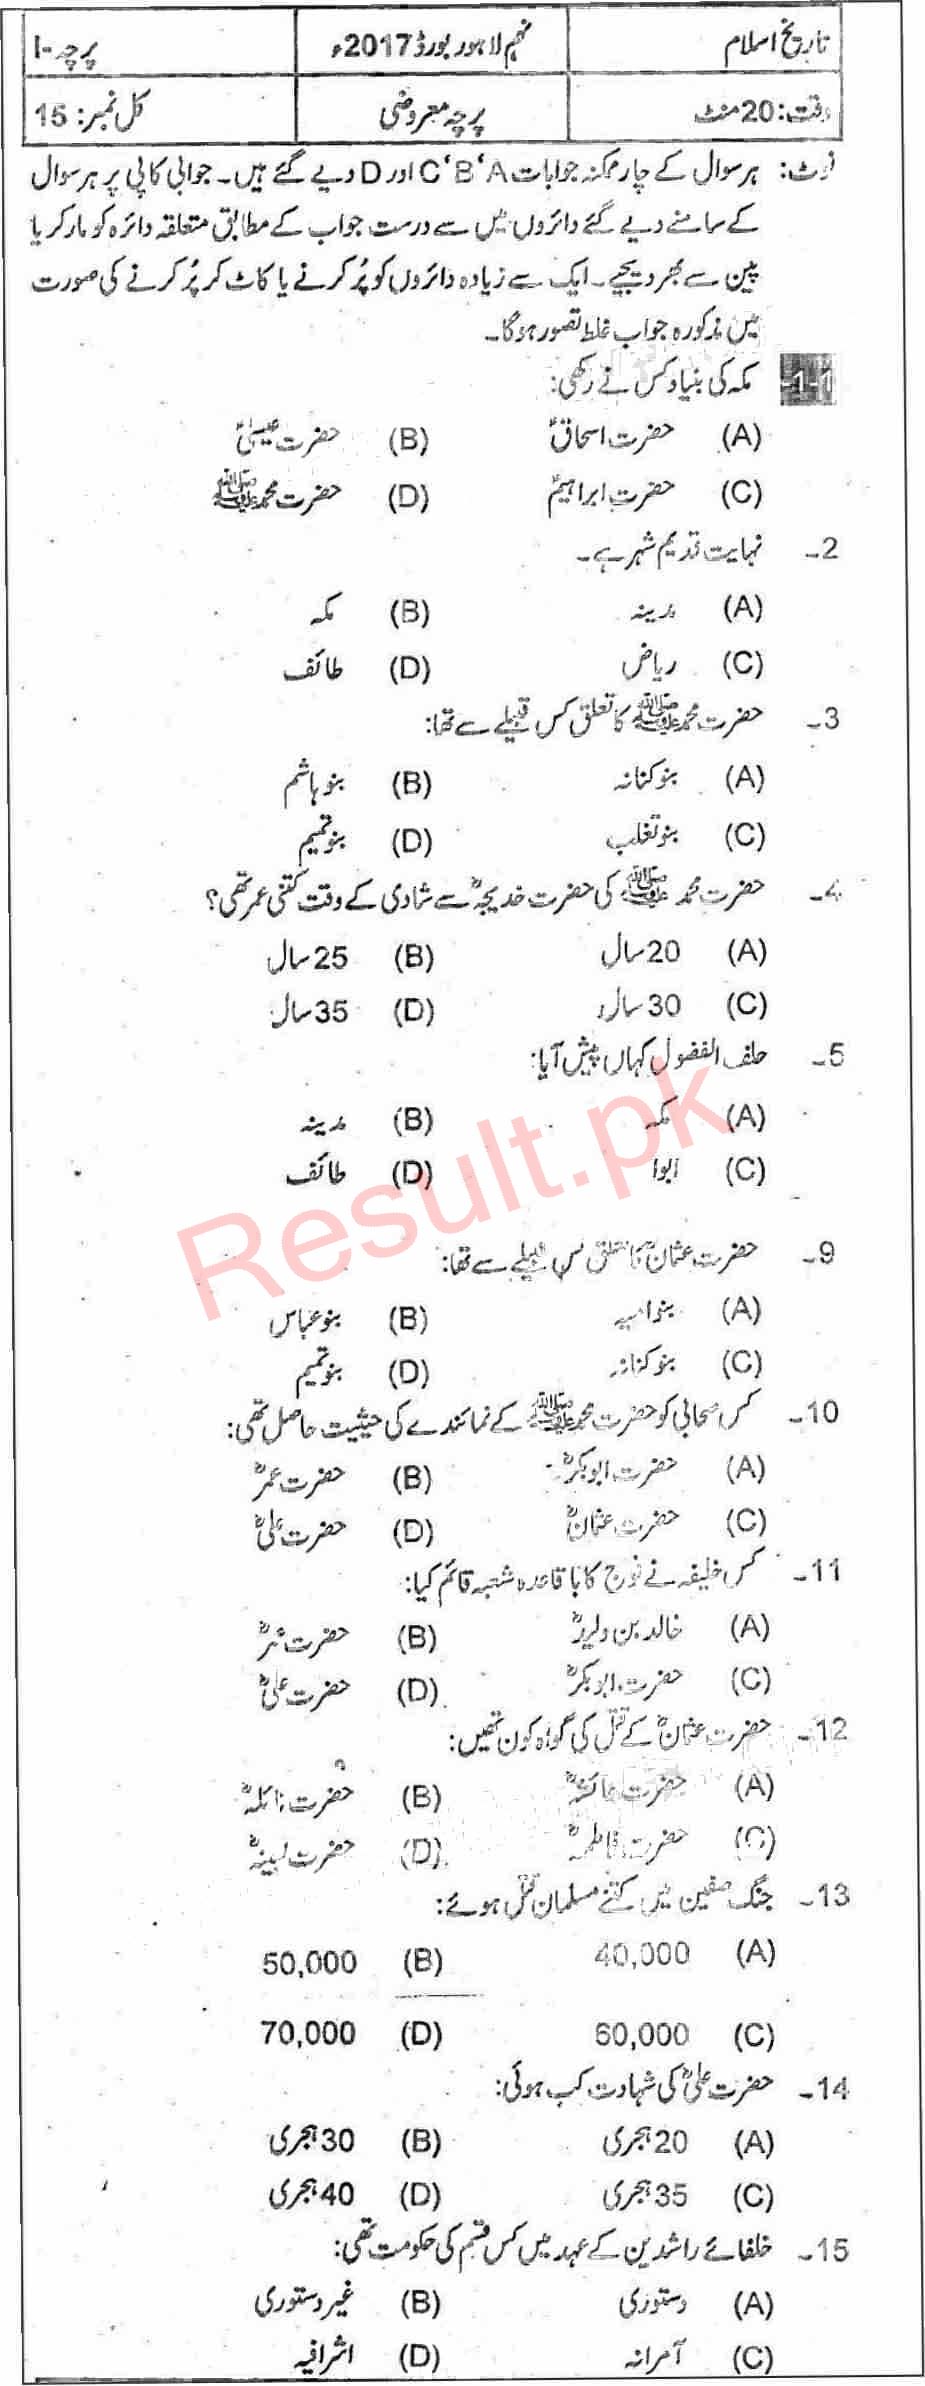 تاریخ اسلام نہم لاہور بورڈ 2017ء پرچہ-I
وقت: 20 منٹ پرچہ معروضی کل نمبر: 15
نوٹ: ہر سوال کے چار ممکنہ جوابات A، B، C اور D دیے گئے ہیں۔ جوابی کاپی پر ہر سوال
کے سامنے دیے گئے دائروں میں سے درست جواب کے مطابق متعلقہ دائرہ کو مارکر یا
پین سے بھر دیجیے۔ ایک سے زیادہ دائروں کو پُر کرنے یا کاٹ کر پُر کرنے کی صورت
میں مذکورہ جواب غلط تصور ہوگا۔
1-1- مکہ کی بنیاد کس نے رکھی:
(A) حضرت اسحاقؑ (B) حضرت عیسیٰؑ
(C) حضرت ابراہیمؑ (D) حضرت محمد ﷺ
2- نہایت قدیم شہر ہے۔
(A) مدینہ (B) مکہ
(C) ریاض (D) طائف
3- حضرت محمد ﷺ کا تعلق کس قبیلے سے تھا:
(A) بنو کنانہ (B) بنو ہاشم
(C) بنو تغلب (D) بنو تمیم
4- حضرت محمد ﷺ کی حضرت خدیجہؓ سے شادی کے وقت کتنی عمر تھی؟
(A) 20 سال (B) 25 سال
(C) 30 سال (D) 35 سال
5- حلف الفضول کہاں پیش آیا:
(A) مکہ (B) مدینہ
(C) ابوا (D) طائف
Result.pk
9- حضرت عثمانؓ کا تعلق کس قبیلے سے تھا:
(A) بنو امیہ (B) بنو عباس
(C) بنو کنانہ (D) بنو تمیم
10- کس صحابی کو حضرت محمد ﷺ کے نمائندے کی حیثیت حاصل تھی:
(A) حضرت ابوبکرؓ (B) حضرت عمرؓ
(C) حضرت عثمانؓ (D) حضرت علیؓ
11- کس خلیفہ نے فوج کا باقاعدہ شعبہ قائم کیا:
(A) خالد بن ولیدؓ (B) حضرت عمرؓ
(C) حضرت ابوبکرؓ (D) حضرت علیؓ
12- حضرت عثمانؓ کے قتل کی گواہ کون تھیں:
(A) حضرت عائشہؓ (B) حضرت نائلہؓ
(C) حضرت فاطمہؓ (D) حضرت لبینہؓ
13- جنگ صفین میں کتنے مسلمان قتل ہوئے:
(A) 40,000 (B) 50,000
(C) 60,000 (D) 70,000
14- حضرت علیؓ کی شہادت کب ہوئی:
(A) 20 ہجری (B) 30 ہجری
(C) 35 ہجری (D) 40 ہجری
15- خلفائے راشدین کے عہد میں کس قسم کی حکومت تھی:
(A) دستوری (B) غیر دستوری
(C) آمرانہ (D) اشرافیہ